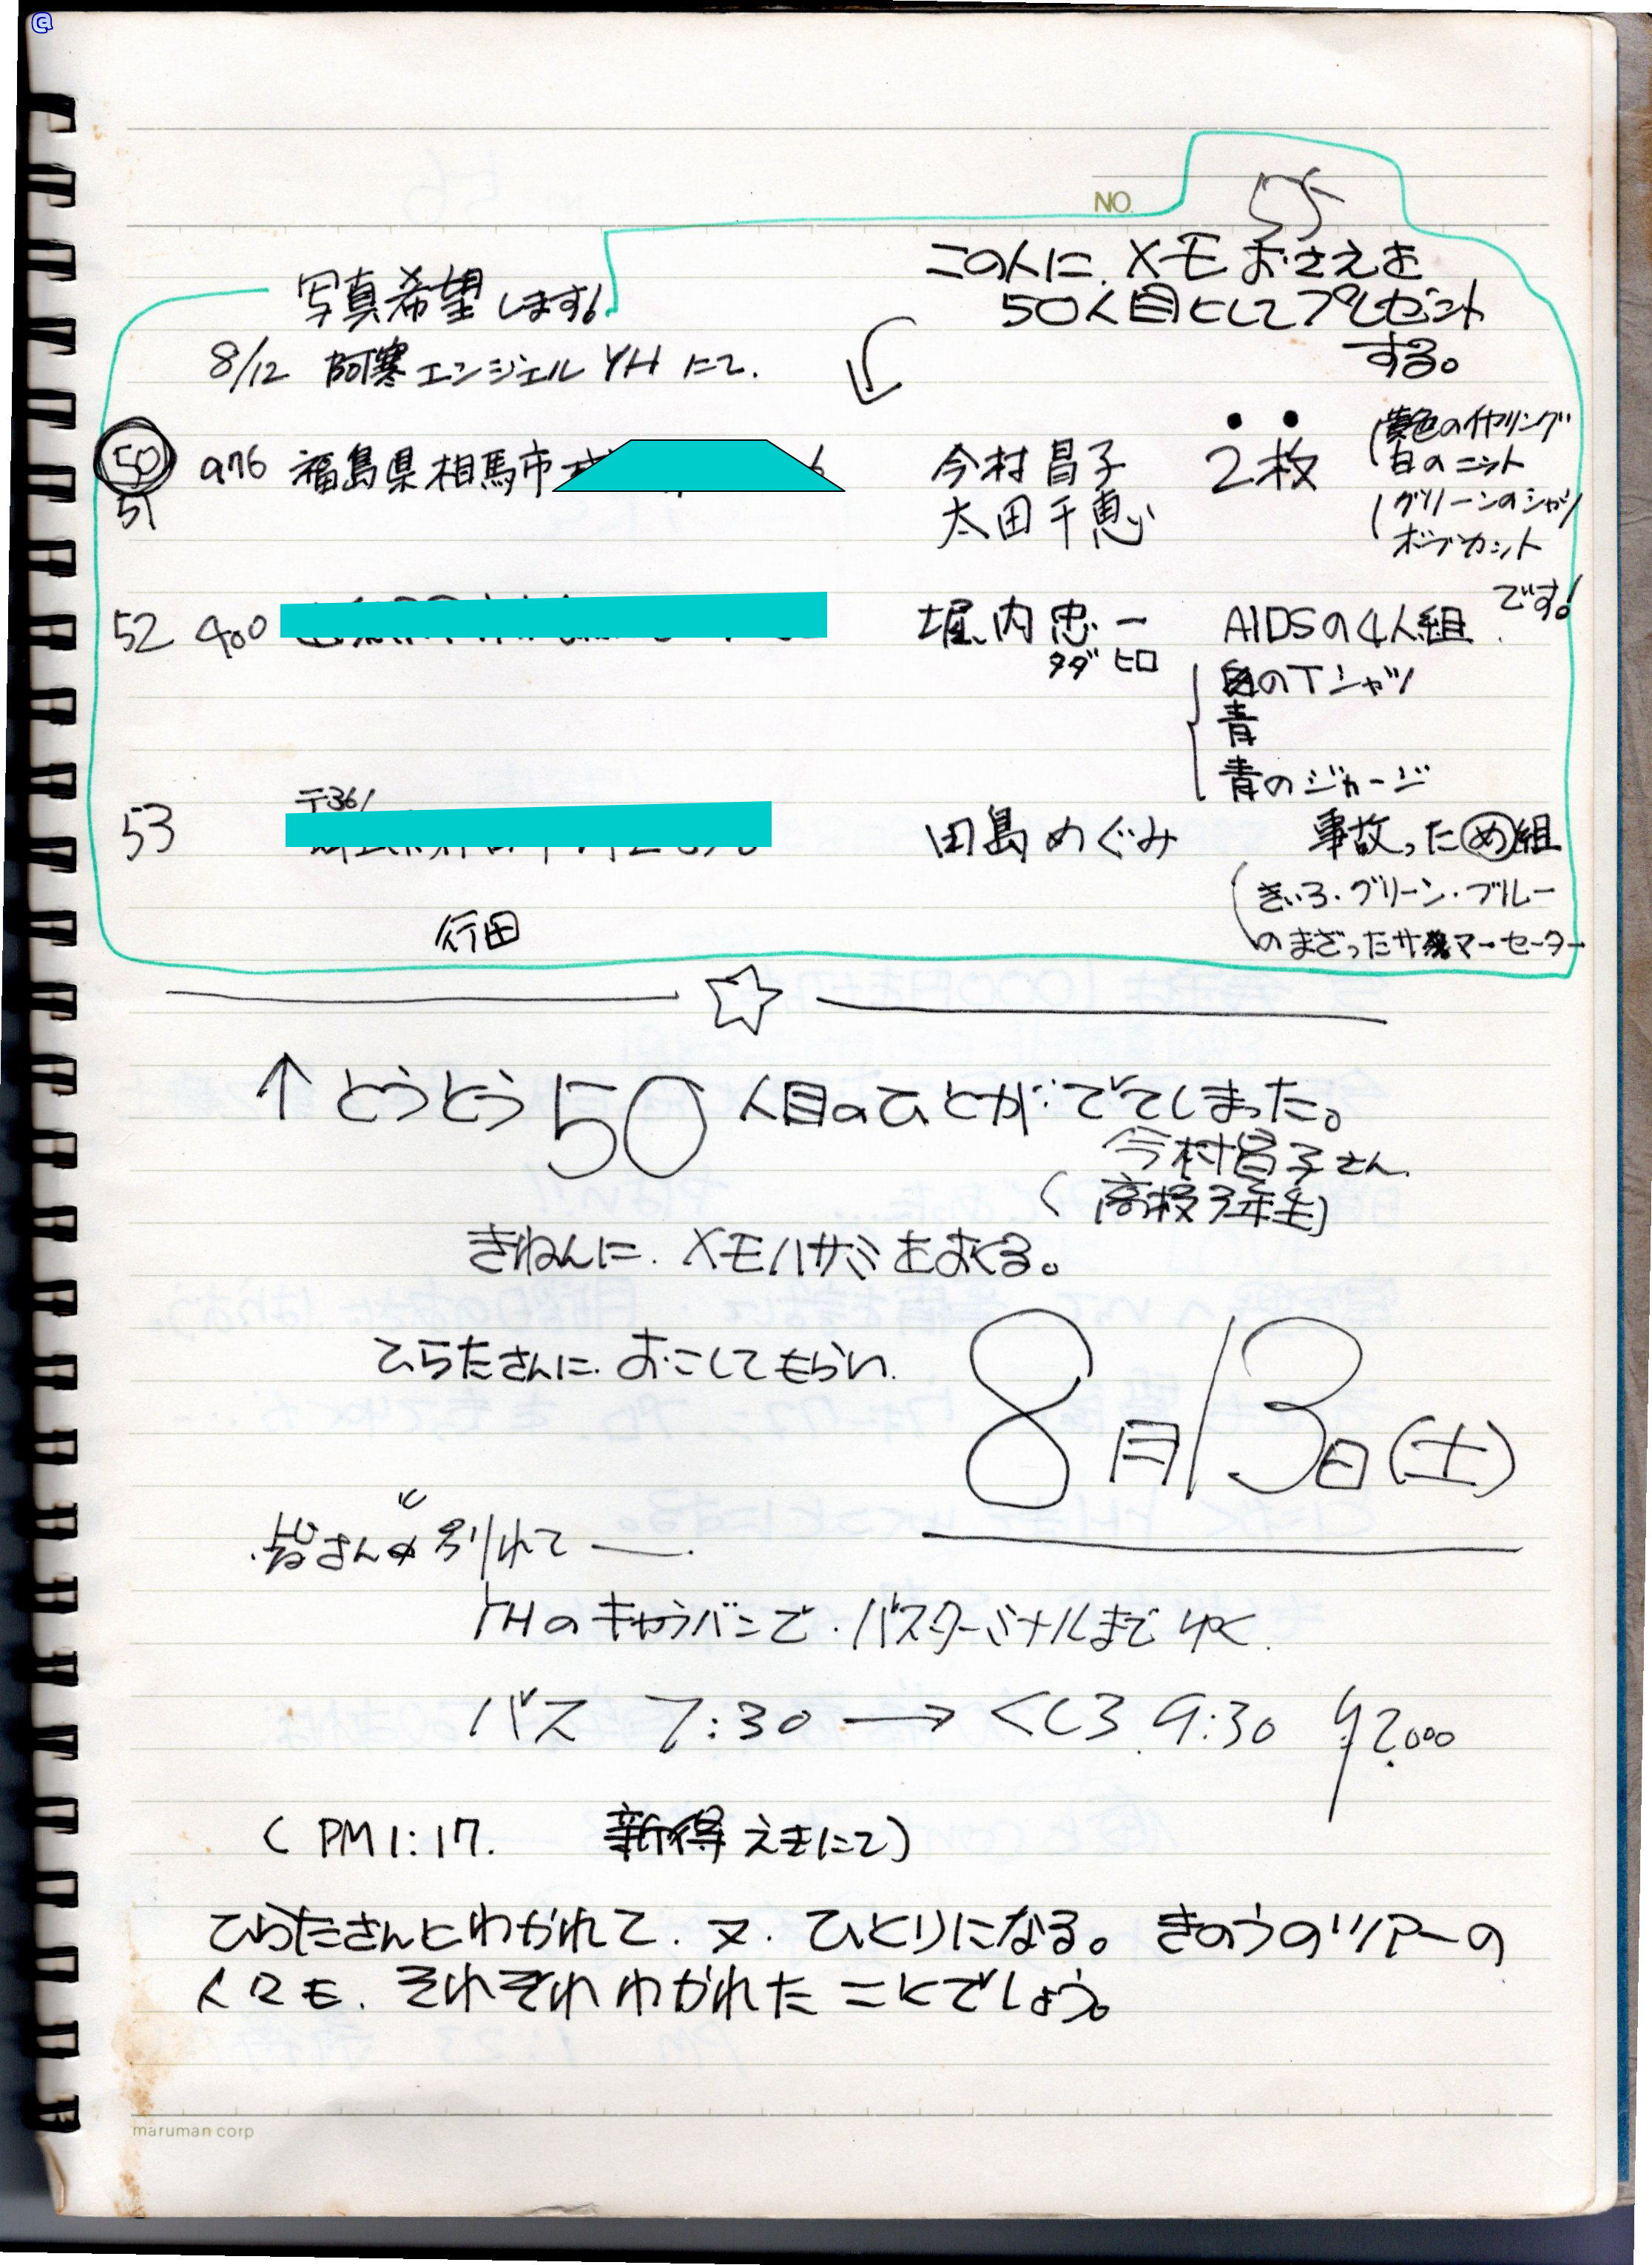 NO. 55
この人に、メモおさえを
50人目としてプレゼント
する。
写真希望します!
8/12 阿寒エンジェルYHにて.
㊿ 976 福島県相馬市 今村昌子 2枚 (黄色のイヤリング
白のニット
51 太田千恵 (グリーンのシャツ
ボブカット
です!
52 400 堀内忠一 AIDSの4人組
タダヒロ
白のTシャツ
青
青のジャージ
〒361
53 田島めぐみ 事故った㋱組
(きいろ・グリーン・ブルー
のまざったサマーセーター
行田
☆
↑とうとう50人目のひとがでてしまった。
今村昌子さん
(高校3年生)
きねんに、メモハサミをおくる。
ひらたさんに、おこしてもらい
8月13日(土)
皆さんに別れて——.
YHのキャラバンで、バスターミナルまでゆく.
バス 7:30 → くしろ 9:30 ¥2000
(PM1:17. 新得えきにて)
ひらたさんとわかれて、又、ひとりになる。きのうのツアーの
人々も、それぞれわかれたことでしょう。
maruman corp